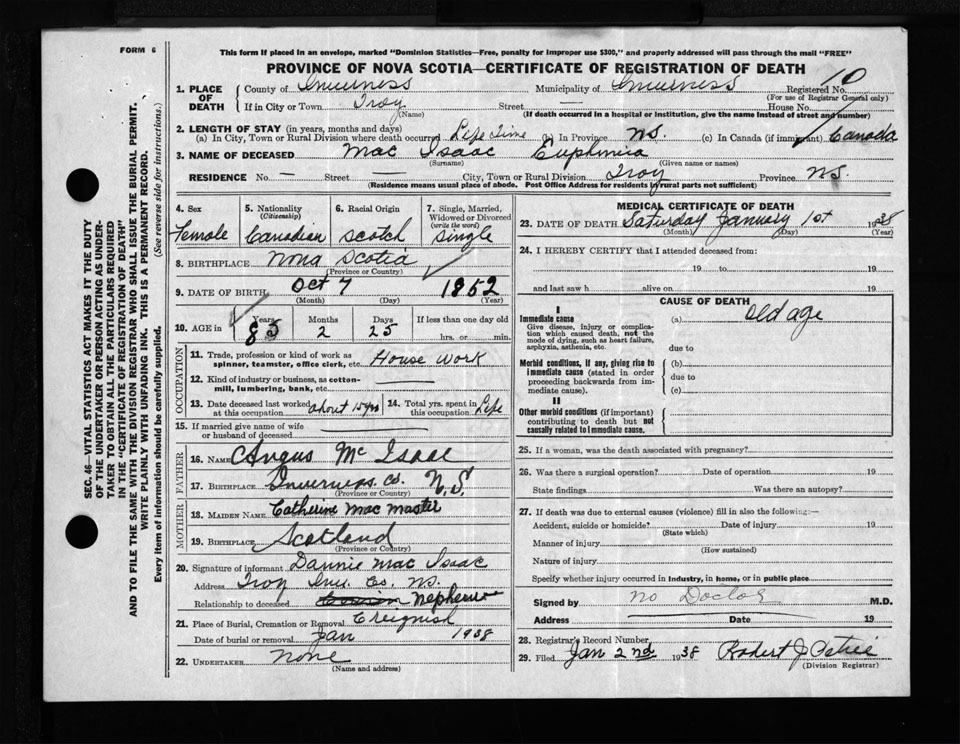 FORM 6
This form if placed in an envelope, marked "Dominion Statistics—Free, penalty for improper use $300," and properly addressed will pass through the mail "FREE"
PROVINCE OF NOVA SCOTIA—CERTIFICATE OF REGISTRATION OF DEATH
1. PLACE OF DEATH County of Inverness Municipality of Inverness Registered No. 10
(For use of Registrar General only)
If in City or Town Troy Street — House No.
(Name) (If death occurred in a hospital or institution, give the name instead of street and number)
2. LENGTH OF STAY (in years, months and days)
(a) In City, Town or Rural Division where death occurred Life Time (b) In Province NS. (c) In Canada (if immigrant) Canada
3. NAME OF DECEASED Mac Isaac Euphmia
(Surname) (Given name or names)
RESIDENCE No. — Street — City, Town or Rural Division Troy Province NS.
(Residence means usual place of abode. Post Office Address for residents in rural parts not sufficient)
4. Sex Female
5. Nationality (Citizenship) Canadian
6. Racial Origin Scotch
7. Single, Married, Widowed or Divorced (write the word) Single
8. BIRTHPLACE Nova Scotia
(Province or Country)
9. DATE OF BIRTH Oct 7 1852
(Month) (Day) (Year)
10. AGE in Years Months Days If less than one day old
85 2 25 hrs. or min.
OCCUPATION
11. Trade, profession or kind of work as spinner, teamster, office clerk, etc. House Work
12. Kind of industry or business, as cotton-mill, lumbering, bank, etc. —
13. Date deceased last worked at this occupation about 15 yrs 14. Total yrs. spent in this occupation Life
15. If married give name of wife or husband of deceased —
FATHER
16. NAME Angus Mc Isaac
17. BIRTHPLACE Inverness Co. N.S.
(Province or Country)
MOTHER
18. MAIDEN NAME Catherine Mac Master
19. BIRTHPLACE Scotland
(Province or Country)
20. Signature of informant Dannie Mac Isaac
Address Troy Inv. Co. NS.
Relationship to deceased Nephew
21. Place of Burial, Cremation or Removal Creignish
Date of burial or removal Jan 1938
22. UNDERTAKER None
(Name and address)
MEDICAL CERTIFICATE OF DEATH
23. DATE OF DEATH Saturday January 1st 1938
(Month) (Day) (Year)
24. I HEREBY CERTIFY that I attended deceased from:
19 to 19
and last saw h alive on 19
CAUSE OF DEATH
I
Immediate cause (a) old age
Give disease, injury or complication which caused death, not the mode of dying, such as heart failure, asphyxia, asthenia, etc.
due to
Morbid conditions, if any, giving rise to immediate cause (stated in order proceeding backwards from immediate cause).
(b)
due to
(c)
II
Other morbid conditions (if important) contributing to death but not causally related to immediate cause.
25. If a woman, was the death associated with pregnancy?
26. Was there a surgical operation? Date of operation 19
State findings Was there an autopsy?
27. If death was due to external causes (violence) fill in also the following:—
Accident, suicide or homicide? Date of injury 19
(State which)
Manner of injury
(How sustained)
Nature of injury
Specify whether injury occurred in industry, in home, or in public place
Signed by no Doctor M.D.
Address Date 19
28. Registrar's Record Number
29. Filed Jan 2nd 1938 Robert J Petrie
(Division Registrar)
SEC. 46—VITAL STATISTICS ACT MAKES IT THE DUTY
OF THE UNDERTAKER OR PERSON ACTING AS UNDER-
TAKER TO OBTAIN ALL THE PARTICULARS REQUIRED
IN THE "CERTIFICATE OF REGISTRATION OF DEATH"
AND TO FILE THE SAME WITH THE DIVISION REGISTRAR WHO SHALL ISSUE THE BURIAL PERMIT.
WRITE PLAINLY WITH UNFADING INK. THIS IS A PERMANENT RECORD.
Every item of information should be carefully supplied. (See reverse side for instructions.)